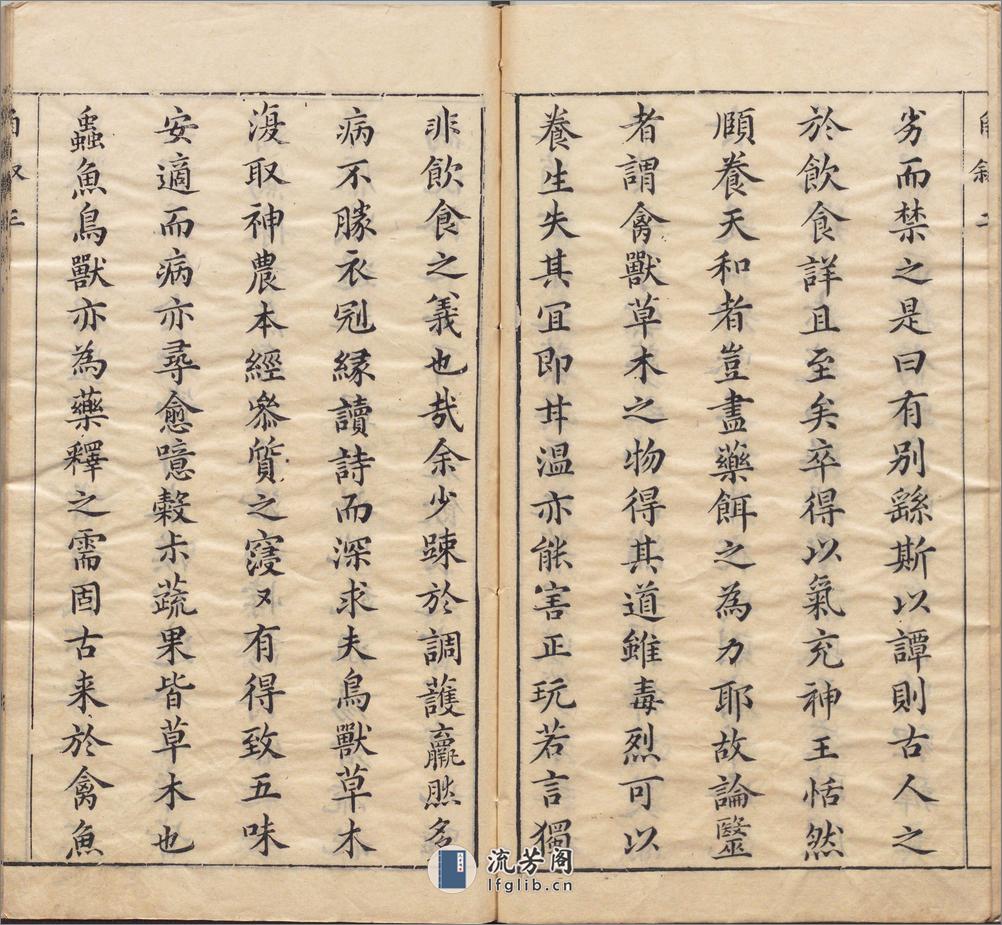 劣而禁之是曰有别繇斯以譚則古人之
於飲食詳且至矣卒得以氣充神王恬然
頤養天和者豈盡藥餌之為力耶故論毉
者謂禽獸草木之物得其道雖毒烈可以
養生失其冝即甘温亦能害正玩若言獨
非飲食之義也哉余少踈於調護羸然多
病不勝衣冠縁讀詩而深求夫鳥獸草木
復取神農本經叅質之寖又有得致五味
安適而病亦尋愈噫糓尗蔬果皆草木也
蟲魚鳥獸亦為藥釋之需固古来於禽魚
流芳阁
lfglib.cn